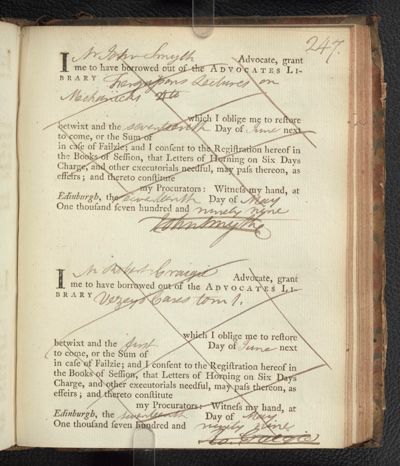 247.
I Mr John Smyth Advocate, grant
me to have borrowed out of the ADVOCATES LI-
BRARY Fergusons Lectures on
Mechanicks 4to
which I oblige me to reſtore
betwixt and the seventeenth Day of June next
to come, or the Sum of
in caſe of Failzie; and I conſent to the Regiſtration hereof in
the Books of Seſſion, that Letters of Horning on Six Days
Charge, and other executorials needful, may paſs thereon, as
effeirs; and thereto conſtitute
my Procurators: Witneſs my hand, at
Edinburgh, the seventeenth Day of May
One thouſand ſeven hundred and ninety nine
John Smythe
I Mr Robert Craigie Advocate, grant
me to have borrowed out of the ADVOCATES LI-
BRARY Vezeys Cases tom 1.
which I oblige me to reſtore
betwixt and the first Day of June next
to come, or the Sum of
in caſe of Failzie; and I conſent to the Regiſtration hereof in
the Books of Seſſion, that Letters of Horning on Six Days
Charge, and other executorials needful, may paſs thereon, as
effeirs; and thereto conſtitute
my Procurators: Witneſs my hand, at
Edinburgh, the seventeenth Day of May
One thouſand ſeven hundred and ninety nine
Ro. Craigie